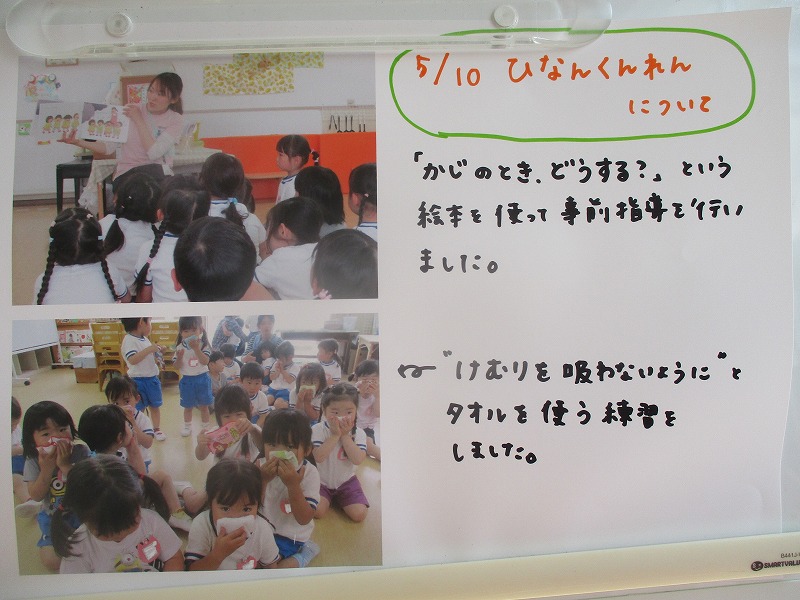 5/10 ひなんくんれん
について
「かじのとき、どうする?」という
絵本を使って事前指導を行い
ました。
"けむりを吸わないように"と
タオルを使う練習を
しました。
SMARTVALUE